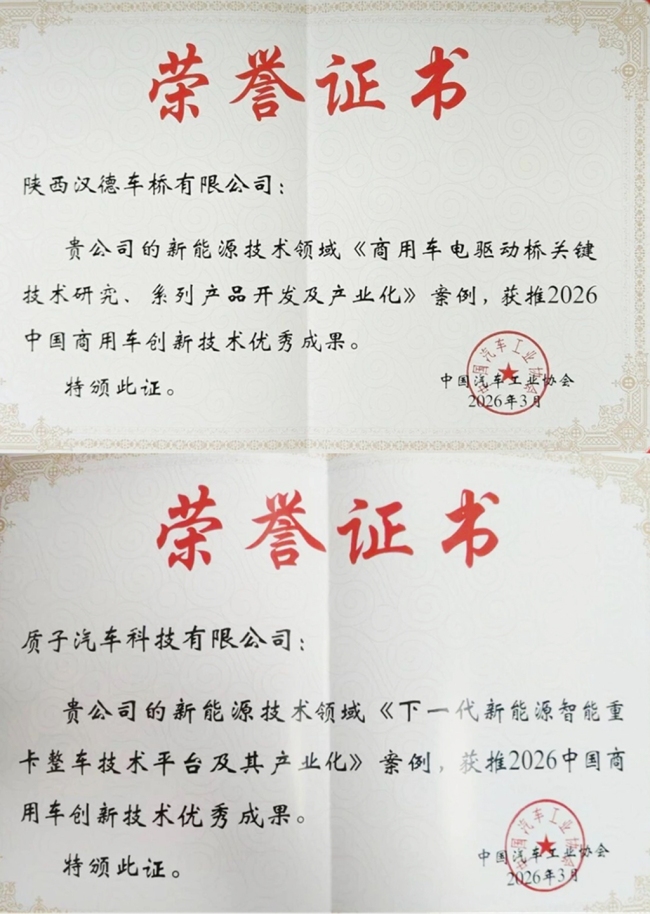 荣誉证书
陕西汉德车桥有限公司：
贵公司的新能源技术领域《商用车电驱动桥关键
技术研究、系列产品开发及产业化》案例，获推2026
中国商用车创新技术优秀成果。
特颁此证。
中国汽车工业协会
中国汽车工业协会
2026年3月
荣誉证书
质子汽车科技有限公司：
贵公司的新能源技术领域《下一代新能源智能重
卡整车技术平台及其产业化》案例，获推2026中国商
用车创新技术优秀成果。
特颁此证。
中国汽车工业协会
中国汽车工业协会
2026年3月